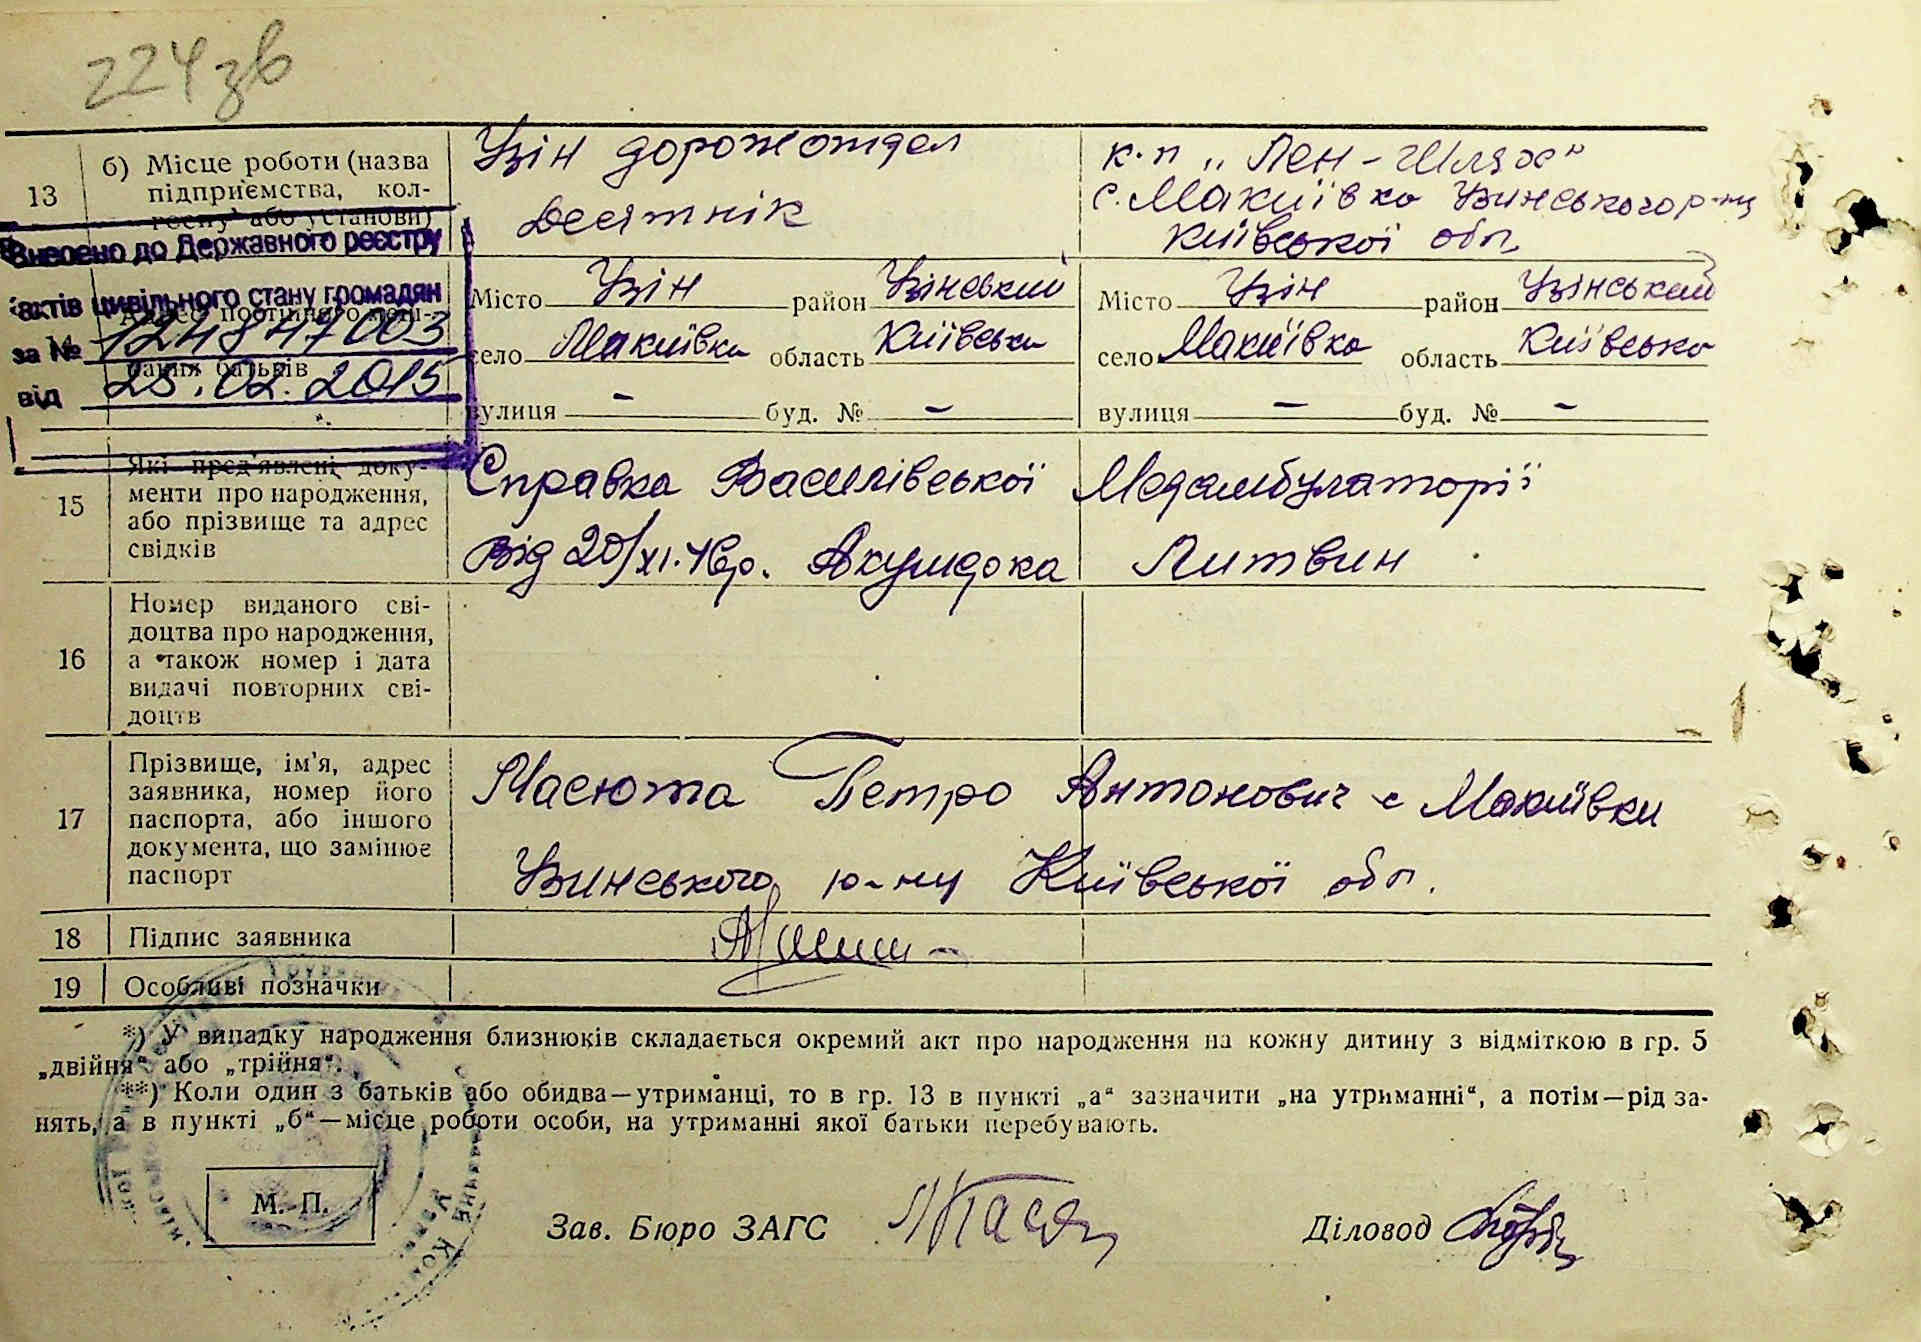 224 зв
13
б) Місце роботи (назва
підприємства, кол-
госпу або установи)
Узін дорожотдел
Десятнік
к-п „Лен-Шлях"
с. Макиївка Узинського р-ну
Київської обл
Внесено до Державного реєстру
актів цивільного стану громадян
за № 124847003
від 25.02.2015
Адрес постійного меш-
кання батьків
Місто Узін район Узінський
село Макиївка область Київська
вулиця — буд. № —
Місто Узін район Узінський
село Макиївка область Київська
вулиця — буд. № —
15
Які пред'явлені доку-
менти про народження,
або прізвище та адрес
свідків
Справка Василівської Медамбулаторії
від 20/XI.46р. Акушорка Литвин
16
Номер виданого сві-
доцтва про народження,
а також номер і дата
видачі повторних сві-
доцтв
17
Прізвище, ім'я, адрес
заявника, номер його
паспорта, або іншого
документа, що замінює
паспорт
Масюта Петро Антонович с Макиївки
Узинського р-ну Київської обл.
18 Підпис заявника
19 Особливі позначки
*) У випадку народження близнюків складається окремий акт про народження на кожну дитину з відміткою в гр. 5
„двійня" або „трійня".
**) Коли один з батьків або обидва—утриманці, то в гр. 13 в пункті „а" зазначити „на утриманні", а потім—рід за-
нять, а в пункті „б"—місце роботи особи, на утриманні якої батьки перебувають.
М. П.
Зав. Бюро ЗАГС
Діловод